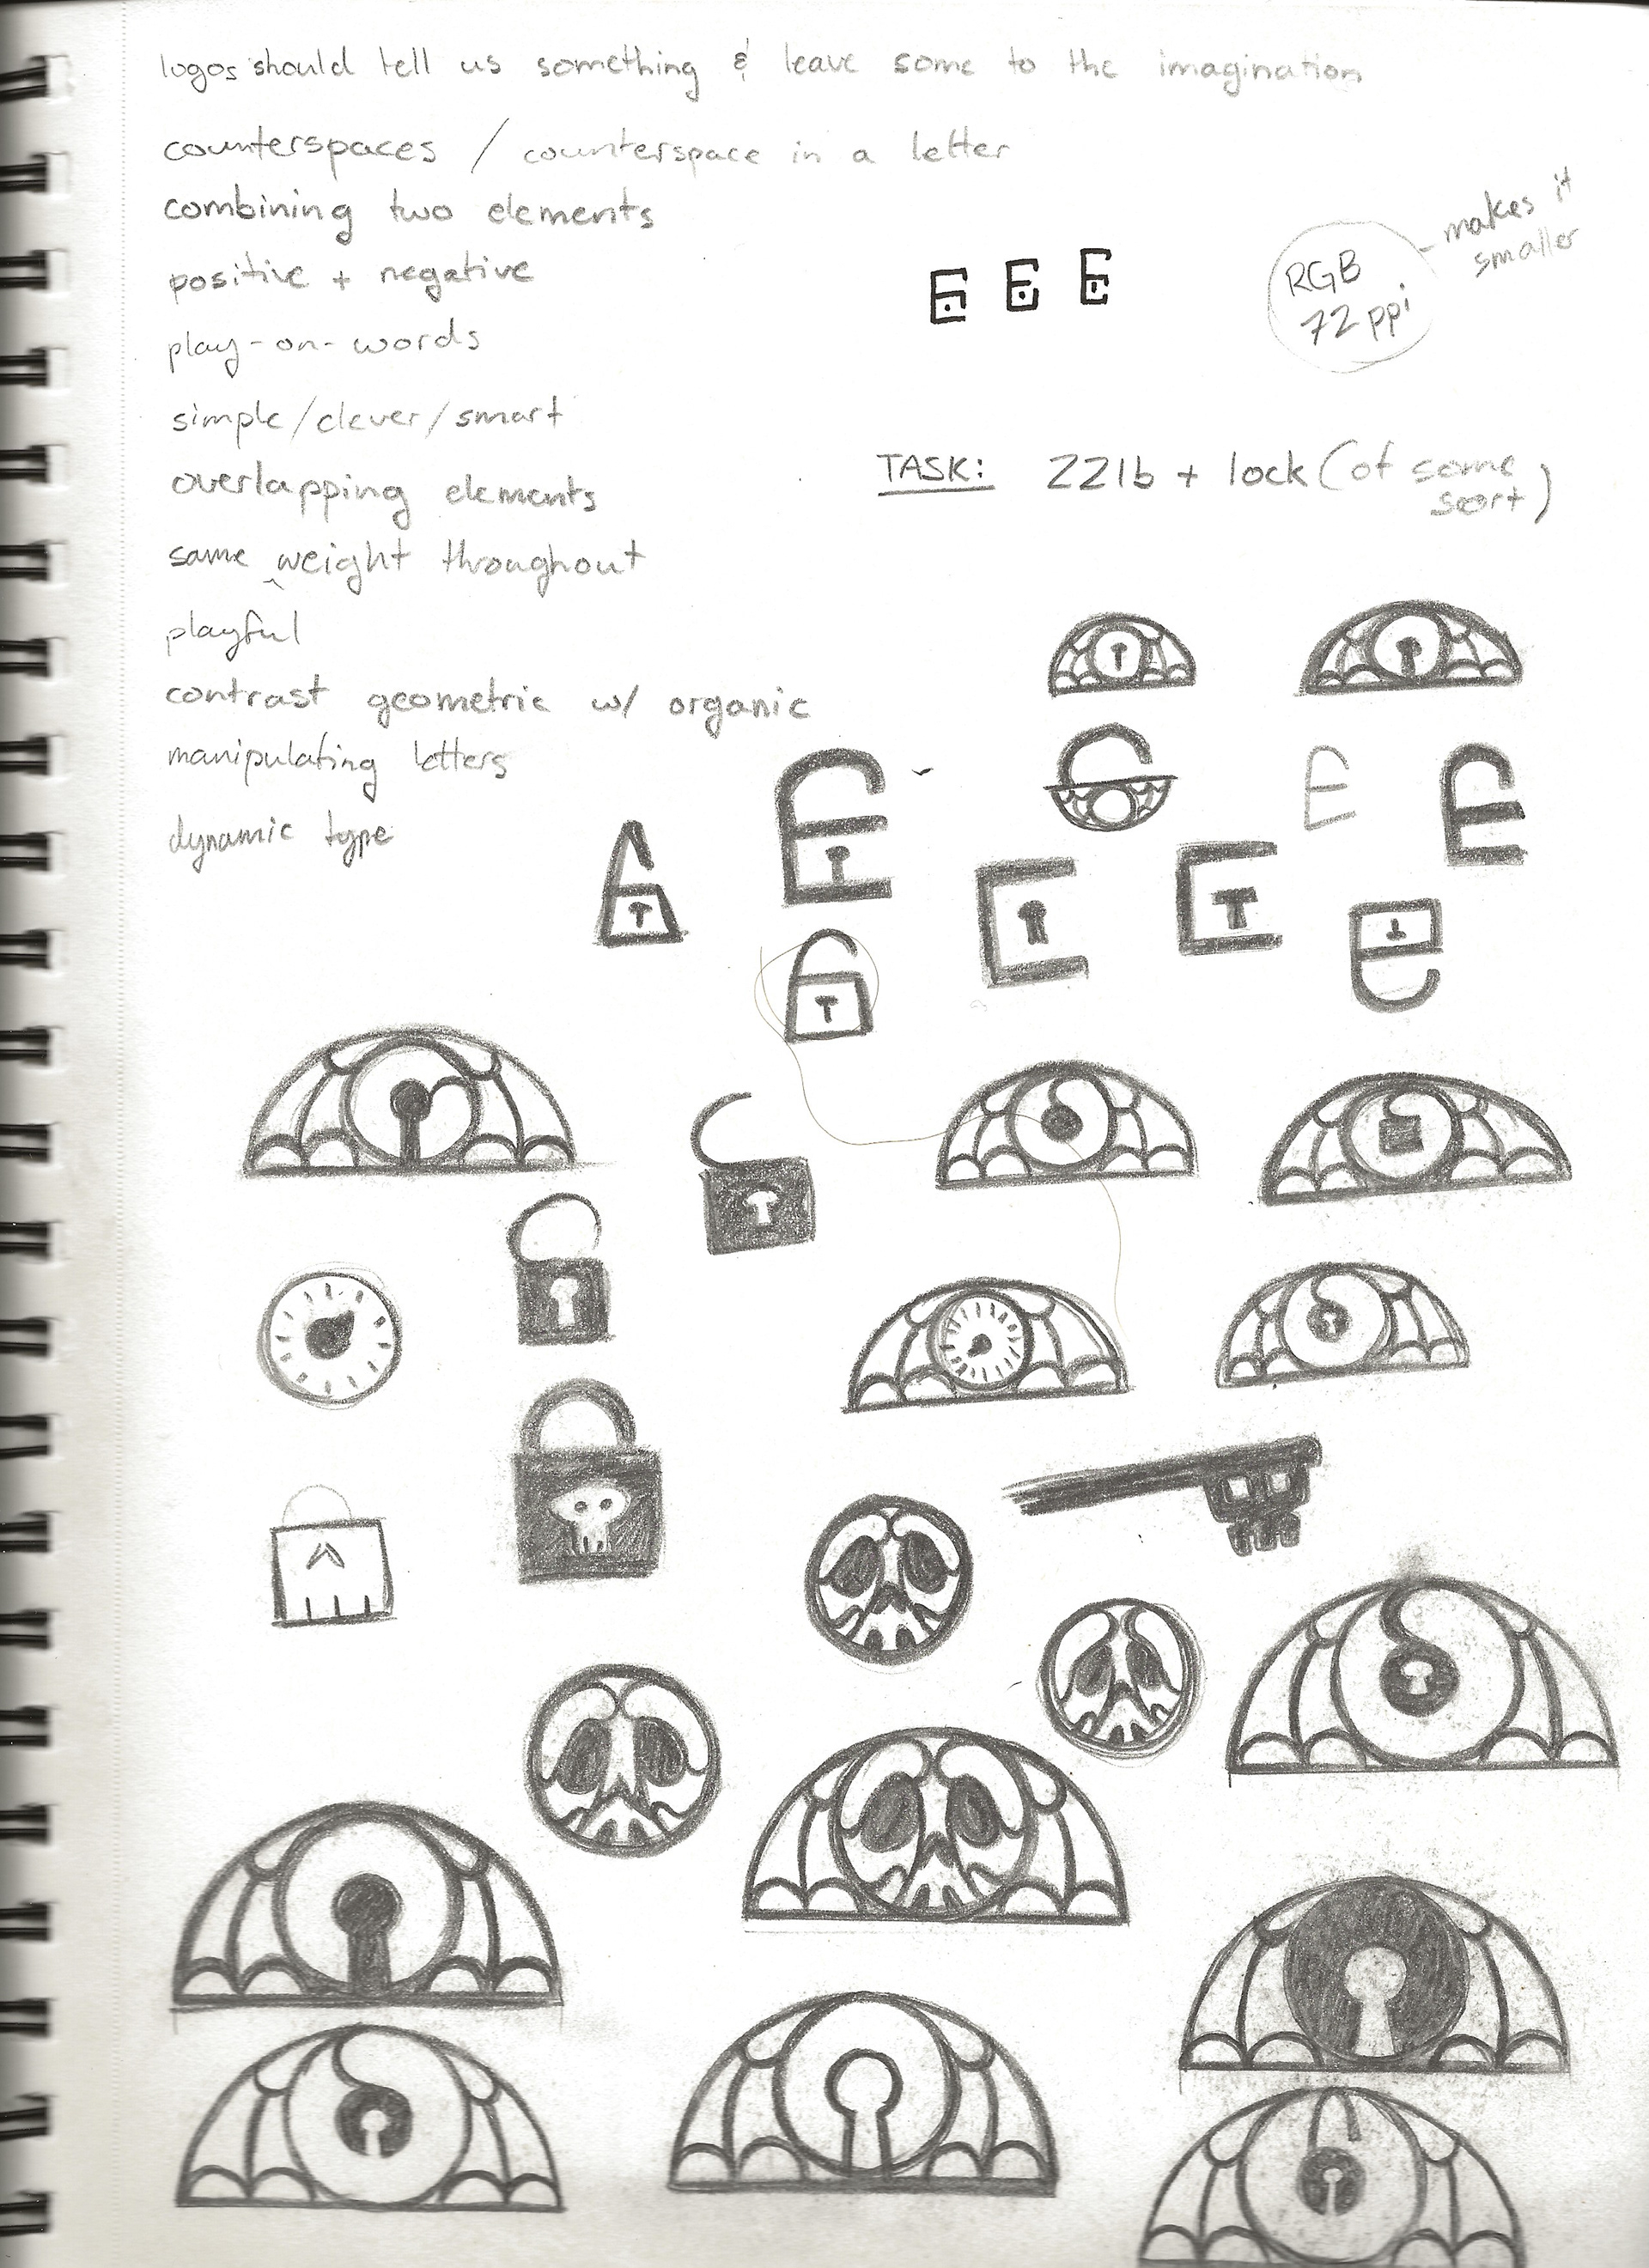 logos should tell us something & leave some to the imagination
counterspaces / counterspace in a letter
combining two elements
positive + negative
play-on-words
simple/clever/smart
overlapping elements
same weight throughout
^
playful
contrast geometric w/ organic
manipulating letters
dynamic type
E E E
RGB
72 ppi
- makes it
smaller
TASK: 221b + lock (of some
sort)